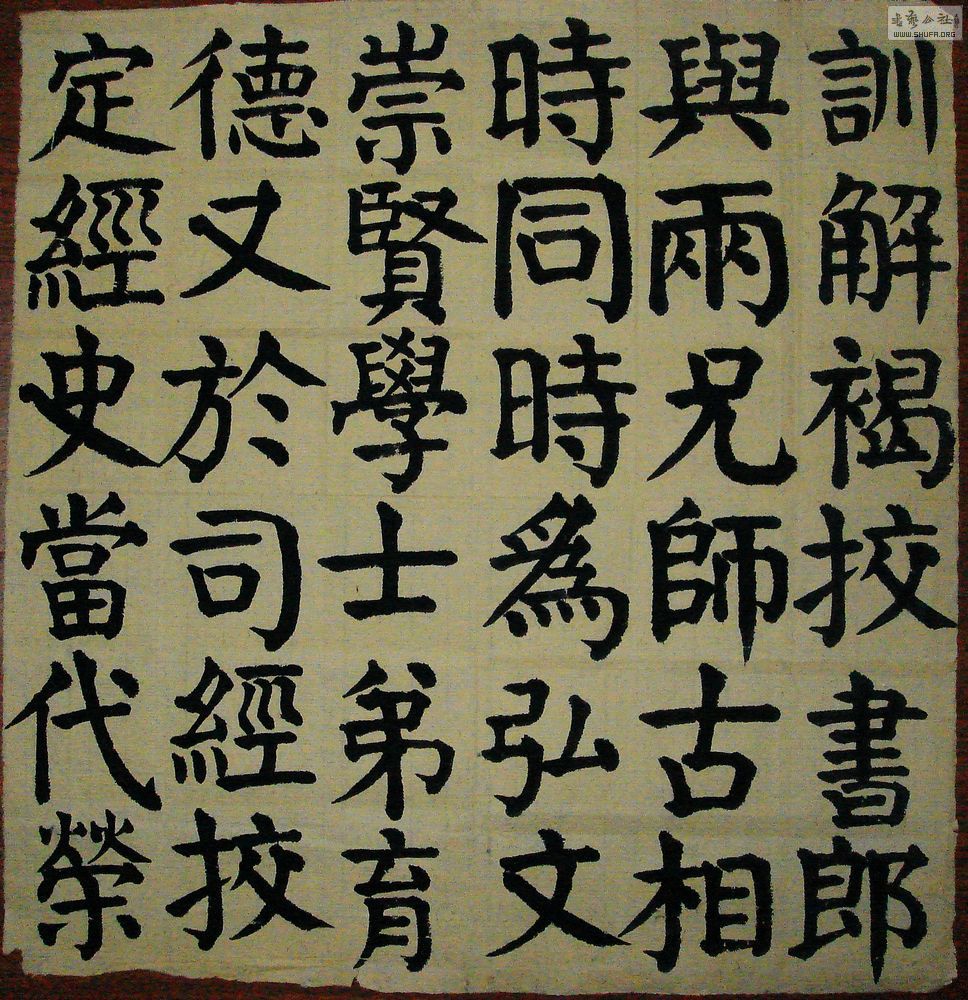 訓解褐挍書郎
與兩兄師古相
時同時為弘文
崇賢學士弟育
德又於司經挍
定經史當代榮
书艺公社
WWW.SHUFA.ORG